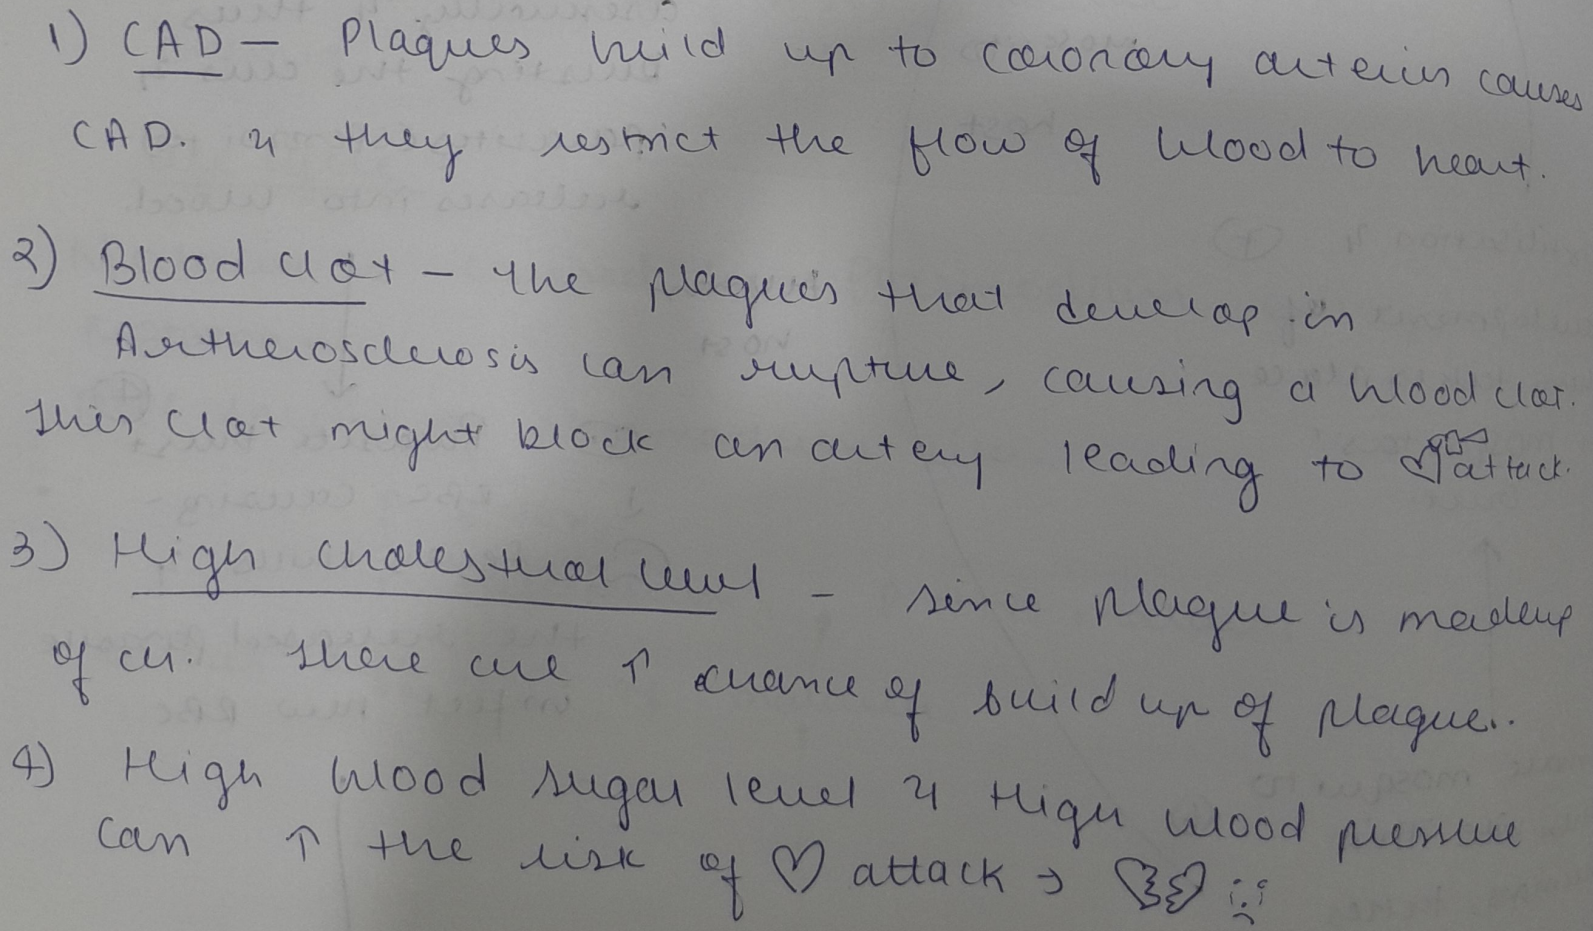 1) CAD - Plaques build up to coronary arteries causes
CAD. & they restrict the flow of blood to heart.
2) Blood clot - the plaques that develop in
Artherosclerosis can rupture, causing a blood clot.
This clot might block an artery leading to attack.
3) High cholestral level - since plaque is madeup
of ch. There are ↑ chance of build up of plaque..
4) High blood sugar level & High blood pressure
can ↑ the risk of ♡ attack →